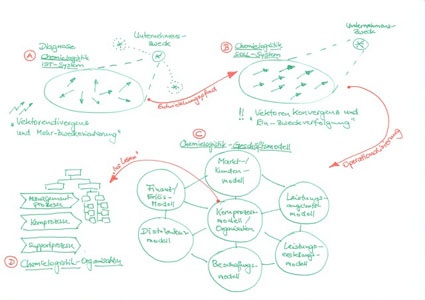 A
Diagnose
Chemielogistik
IST-System
Unternehmens-
zwecke
"Vektorendivergenz
und Mehr-zweckorientierung"
Entwicklungspfad
B
Chemielogistik
SOLL-System
Unternehmens-
zweck
!! "Vektoren konvergenz und
Ein-Zweckverfolgung"
Operationalisierung
C
Chemielogistik-Geschäftsmodell
Markt-/
Kunden-
modell
Finanz-/
Erlös-
Modell
Leistungs-
angebots-
modell
Kernprozess-
modell/
Organisation
Distributions-
modell
Leistungs-
erstellungs-
modell
Beschaffungs-
modell
Management
Prozesse
Kernprozesse
Supportprozesse
D
Chemielogistik-Organisation